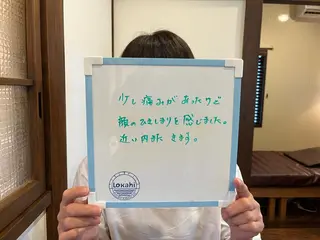 少し痛みがあったけど
顔のひきしまりを感じました。
近い内また きます。
Lokahi